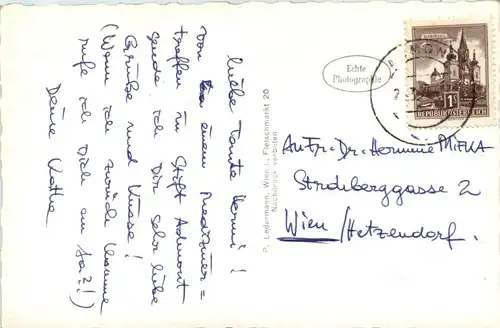 Liebe Tante Hermi!
Von einem Mediziner=
treffen in Stift Admont
sende ich Dir sehr liebe
Grüße und Küsse!
(Wenn ich zurück komme
rufe ich Dich an ja?!)
Deine Kathe
P. Ledermann, Wien I., Fleischmarkt 20
Nachdruck verboten
Echte
Photographie
1S
REPUBLIK ÖSTERREICH
An Fr. Dr. Hermine MIFKA
Strohberggasse 2
Wien /Hetzendorf.